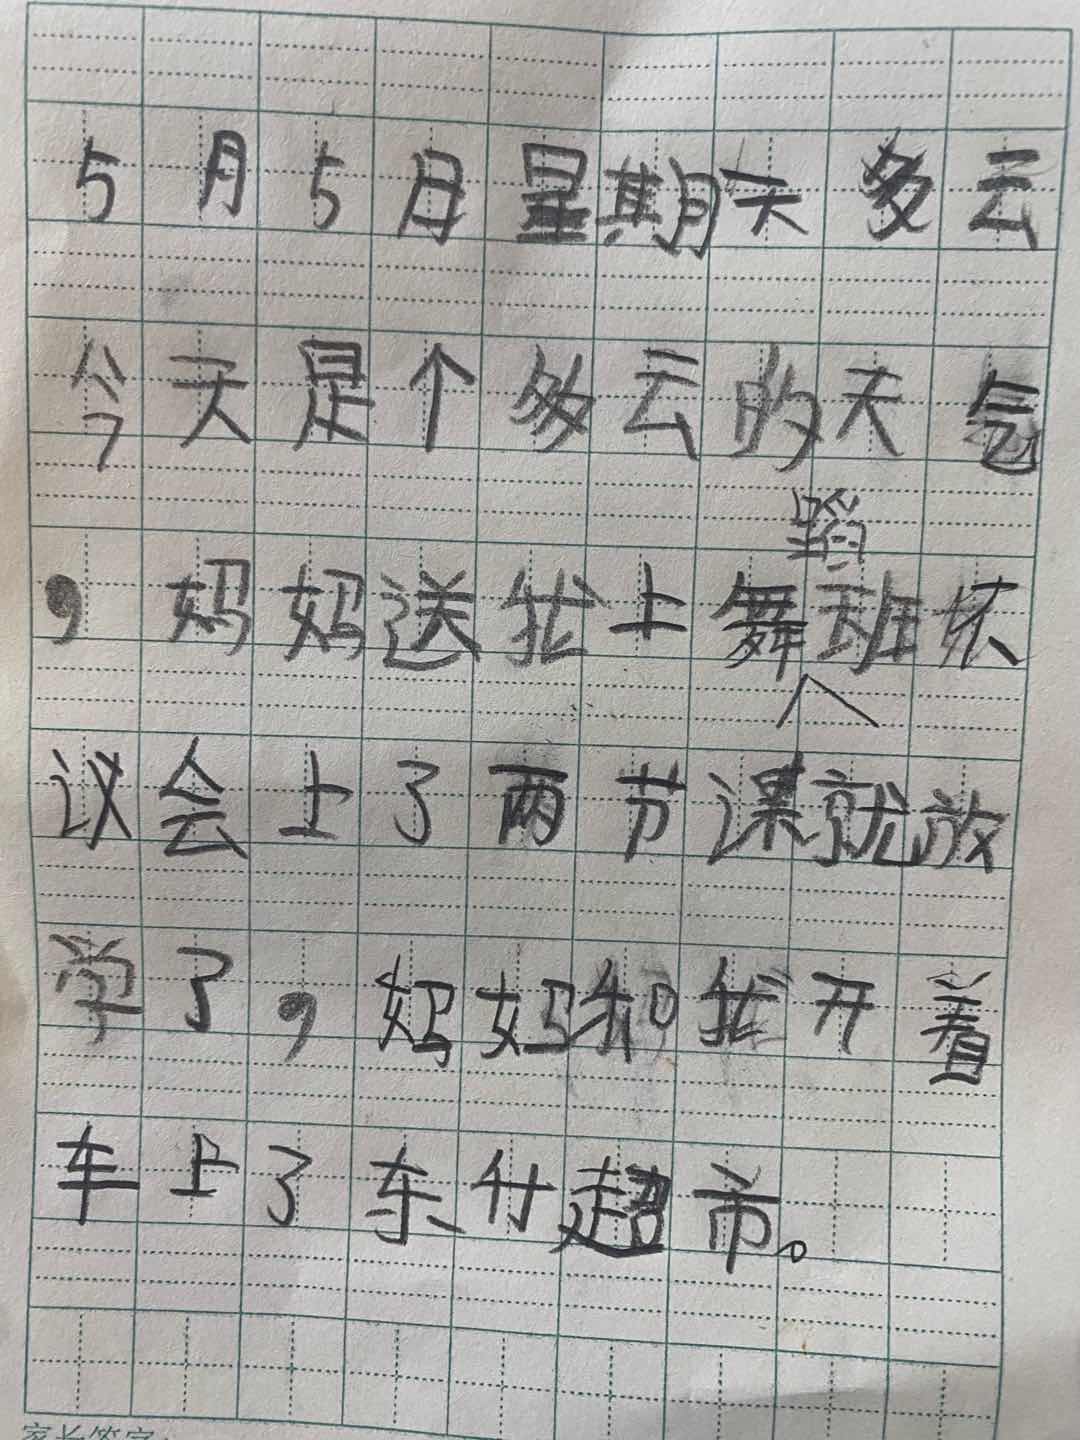 5月5日星期天多云
今天是个多云的天气
，妈妈送我上舞蹈班
议会上了两节课就放
学了，妈妈和我开着
车上了东升超市。
家长签字：